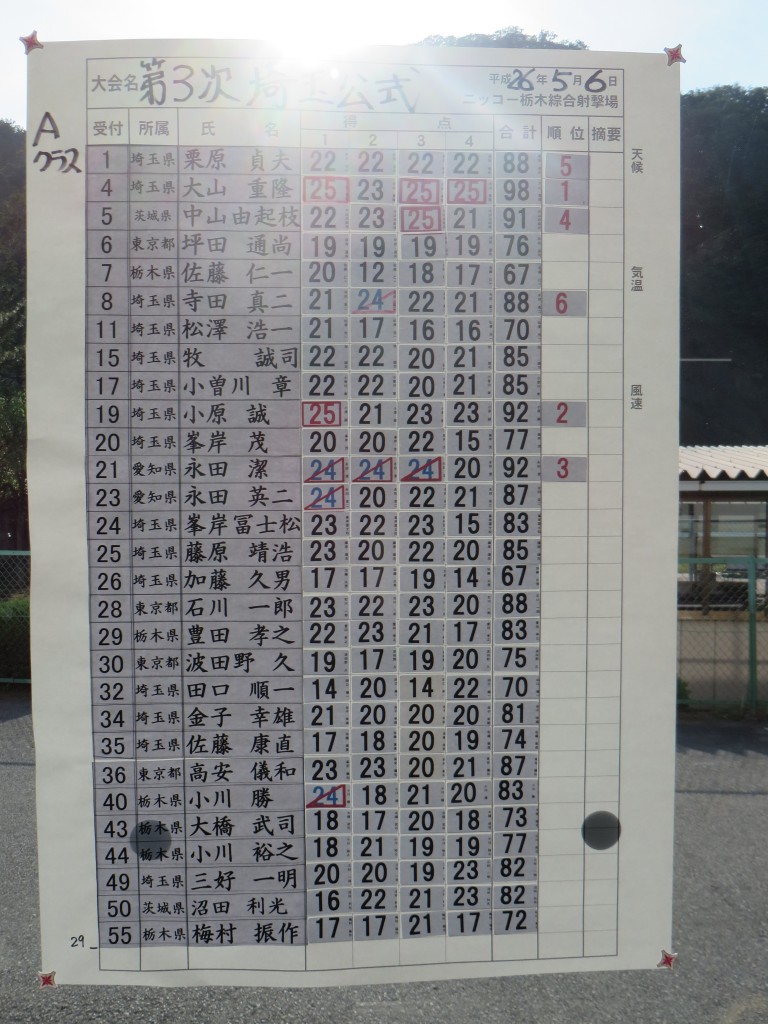 大会名 第3次埼玉公式 平成26年5月6日
ニッコー栃木綜合射撃場
Aクラス
受付 所属 氏名 得点 合計 順位 摘要
1 2 3 4
天候
気温
風速
1 埼玉県 栗原 貞夫 22 22 22 22 88 5
4 埼玉県 大山 重隆 25 23 25 25 98 1
5 茨城県 中山由起枝 22 23 25 21 91 4
6 東京都 坪田 通尚 19 19 19 19 76
7 栃木県 佐藤 仁一 20 12 18 17 67
8 埼玉県 寺田 真二 21 24 22 21 88 6
11 埼玉県 松澤 浩一 21 17 16 16 70
15 埼玉県 牧 誠司 22 22 20 21 85
17 埼玉県 小曽川 章 22 22 20 21 85
19 埼玉県 小原 誠 25 21 23 23 92 2
20 埼玉県 峯岸 茂 20 20 22 15 77
21 愛知県 永田 潔 24 24 24 20 92 3
23 愛知県 永田 英二 24 20 22 21 87
24 埼玉県 峯岸冨士松 23 22 23 15 83
25 埼玉県 藤原 靖浩 23 20 22 20 85
26 埼玉県 加藤 久男 17 17 19 14 67
28 東京都 石川 一郎 23 22 23 20 88
29 栃木県 豊田 孝之 22 23 21 17 83
30 東京都 波田野 久 19 17 19 20 75
32 埼玉県 田口 順一 14 20 14 22 70
34 埼玉県 金子 幸雄 21 20 20 20 81
35 埼玉県 佐藤 康直 17 18 20 19 74
36 東京都 高安 儀和 23 23 20 21 87
40 栃木県 小川 勝 24 18 21 20 83
43 栃木県 大橋 武司 18 17 20 18 73
44 栃木県 小川 裕之 18 21 19 19 77
49 埼玉県 三好 一明 20 20 19 23 82
50 茨城県 沼田 利光 16 22 21 23 82
55 栃木県 梅村 振作 17 17 21 17 72
29